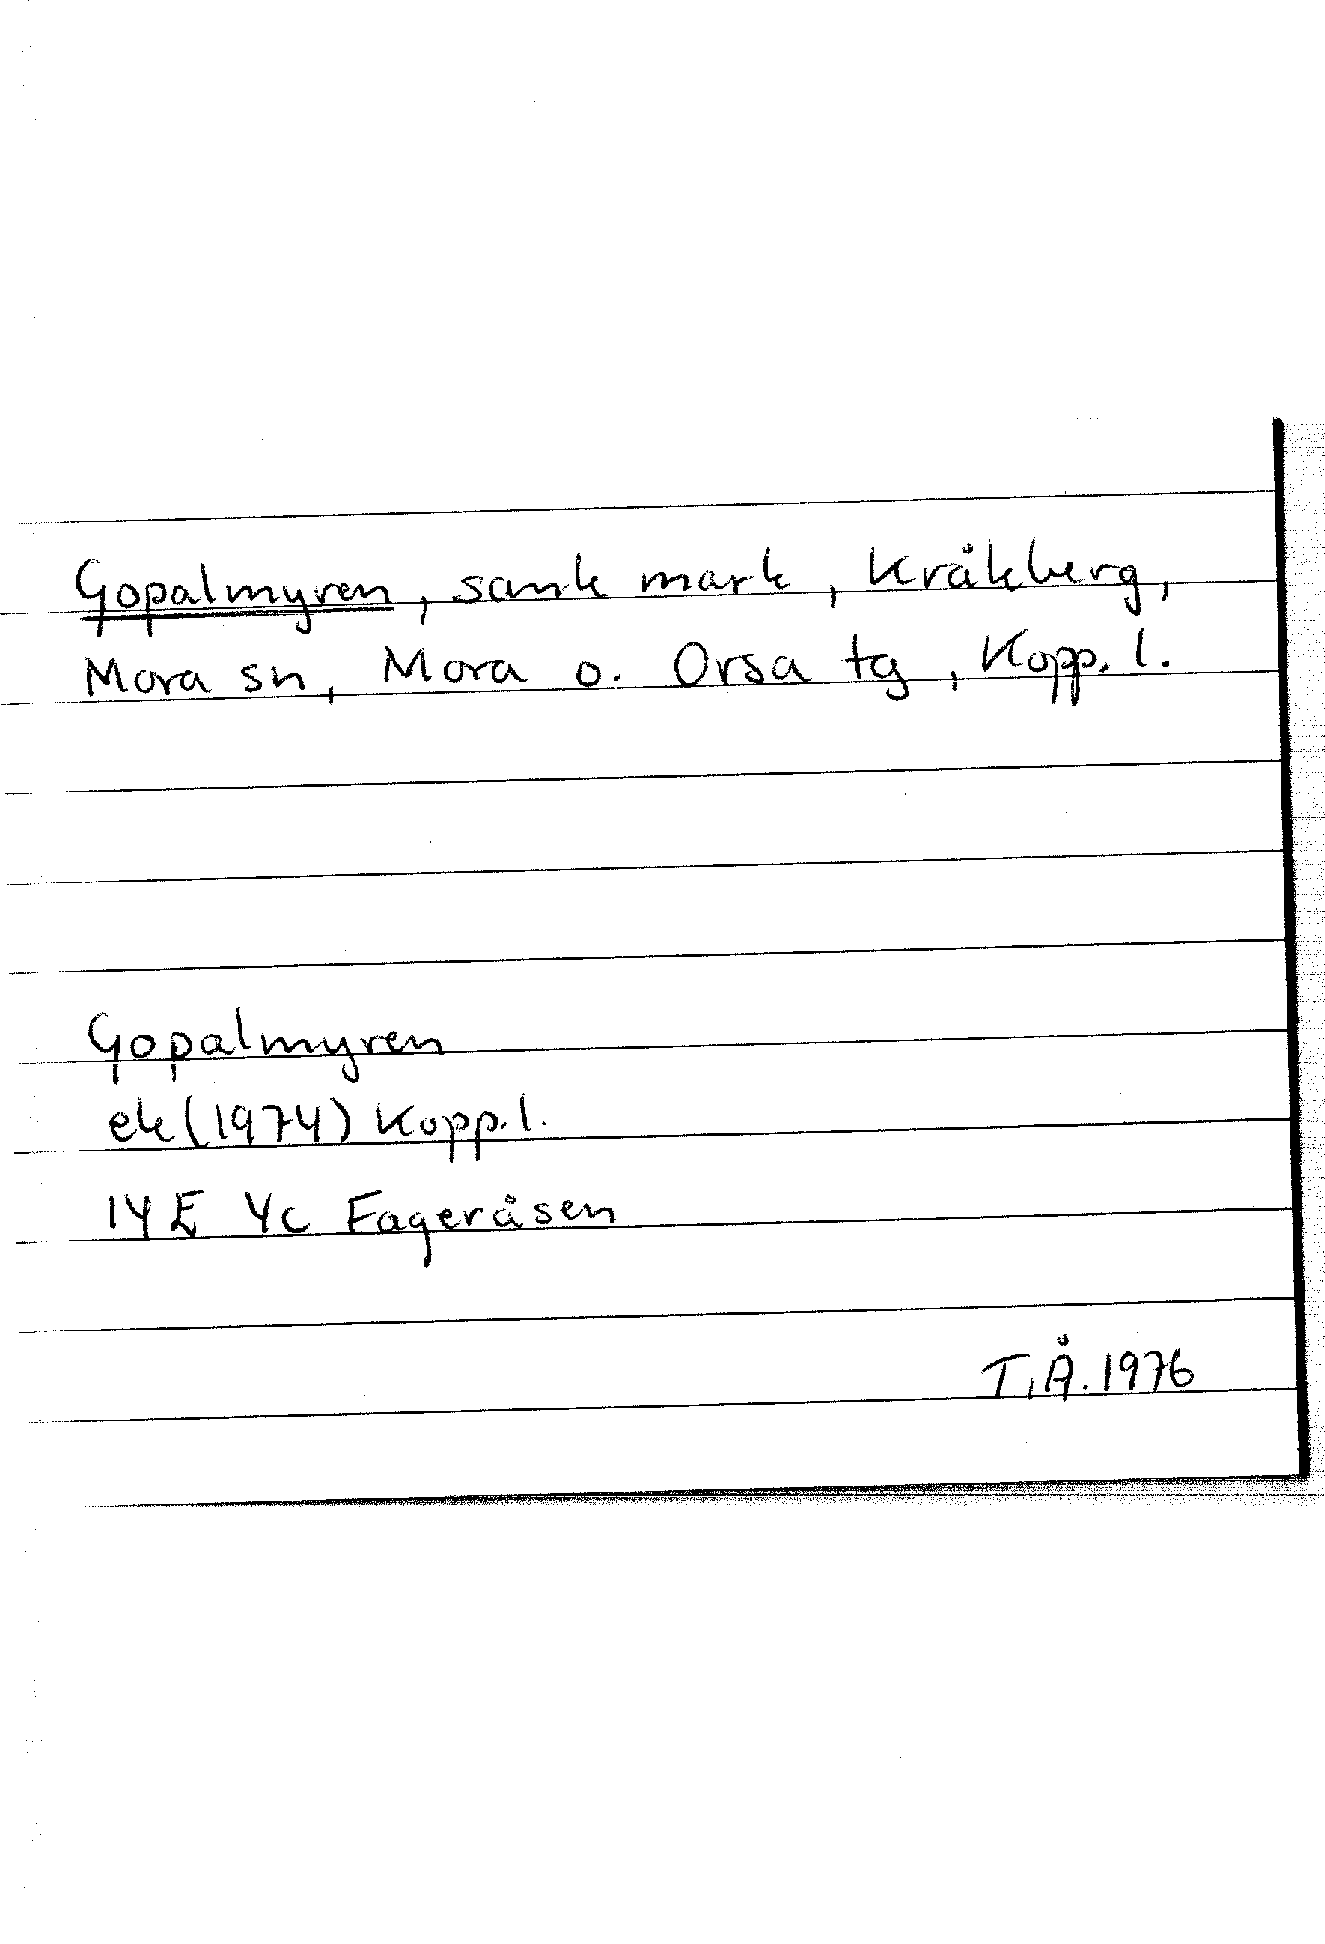 Gopalmyren, sank mark, Kråkberg,
Mora sn, Mora o. Orsa tg, Kopp. l.
Gopalmyren
ek (1974) Kopp. l.
14 E 4c Fageråsen
T.Å. 1976